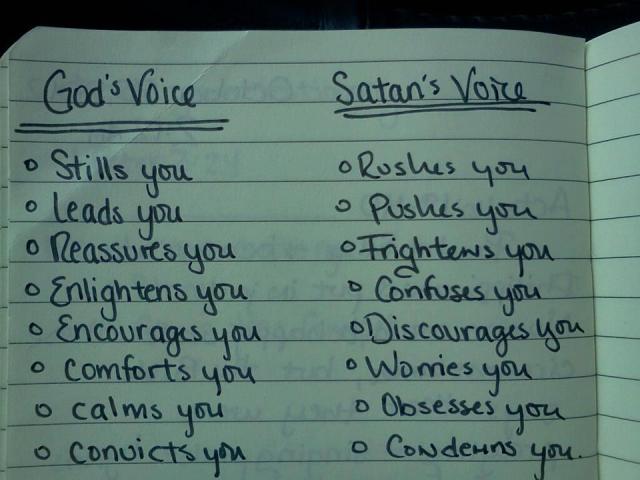 God's Voice Satan's Voice
o Stills you o Rushes you
o leads you o Pushes you
o Reassures you o Frightens you
o Enlightens you o Confuses you
o Encourages you o Discourages you
o comforts you o Worries you
o calms you o Obsesses you
o convicts you o Condemns you.